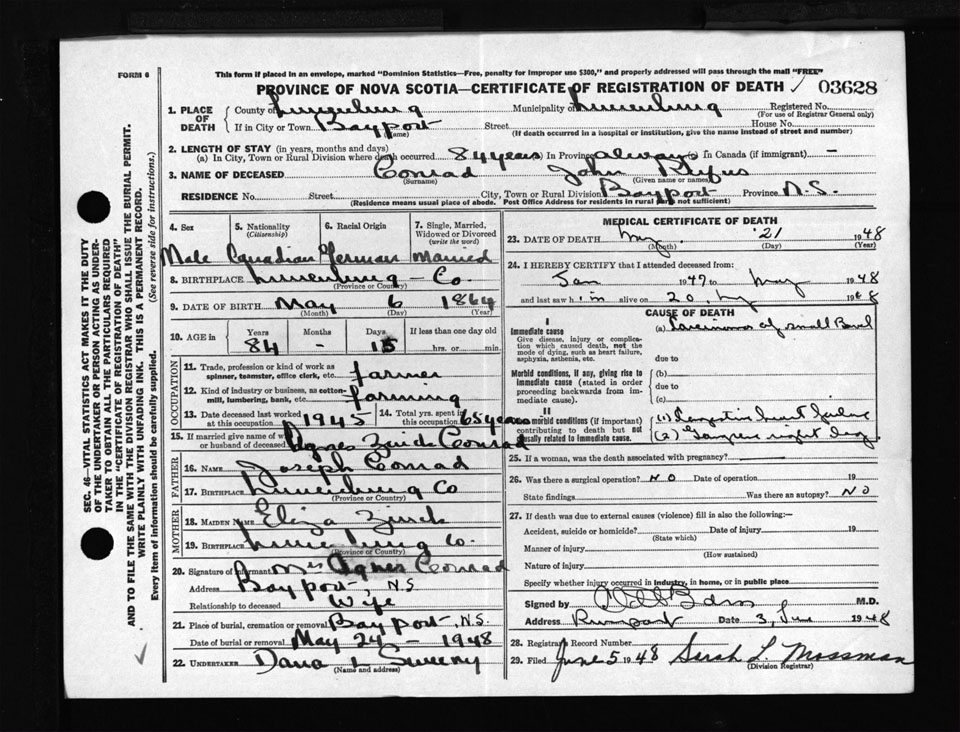 FORM 6
This form if placed in an envelope, marked "Dominion Statistics—Free, penalty for improper use $300," and properly addressed will pass through the mail "FREE"
PROVINCE OF NOVA SCOTIA—CERTIFICATE OF REGISTRATION OF DEATH 03628
SEC. 46—VITAL STATISTICS ACT MAKES IT THE DUTY
OF THE UNDERTAKER OR PERSON ACTING AS UNDER-
TAKER TO OBTAIN ALL THE PARTICULARS REQUIRED
IN THE "CERTIFICATE OF REGISTRATION OF DEATH"
AND TO FILE THE SAME WITH THE DIVISION REGISTRAR WHO SHALL ISSUE THE BURIAL PERMIT.
WRITE PLAINLY WITH UNFADING INK. THIS IS A PERMANENT RECORD.
Every item of information should be carefully supplied. (See reverse side for instructions.)
1. PLACE OF DEATH County of Lunenburg Municipality of Lunenburg Registered No.
(For use of Registrar General only)
If in City or Town Bayport Street House No.
(Name) (If death occurred in a hospital or institution, give the name instead of street and number)
2. LENGTH OF STAY (in years, months and days)
(a) In City, Town or Rural Division where death occurred 84 years In Province always In Canada (if immigrant) —
3. NAME OF DECEASED Conrad John Rufus
(Surname) (Given name or names)
RESIDENCE No. Street City, Town or Rural Division Bayport Province N.S.
(Residence means usual place of abode. Post Office Address for residents in rural parts not sufficient)
4. Sex 5. Nationality (Citizenship) 6. Racial Origin 7. Single, Married, Widowed or Divorced (write the word)
Male Canadian German Married
8. BIRTHPLACE Lunenburg - Co.
(Province or Country)
9. DATE OF BIRTH May 6 1864
(Month) (Day) (Year)
10. AGE in Years Months Days If less than one day old
84 - 15 hrs. or min.
OCCUPATION
11. Trade, profession or kind of work as spinner, teamster, office clerk, etc. farmer
12. Kind of industry or business, as cotton-mill, lumbering, bank, etc. farming
13. Date deceased last worked at this occupation 1945 14. Total yrs. spent in this occupation 65 years
15. If married give name of wife or husband of deceased Agnes Zinck Conrad
FATHER
16. NAME Joseph Conrad
17. BIRTHPLACE Lunenburg Co
(Province or Country)
MOTHER
18. MAIDEN NAME Eliza Zinck
19. BIRTHPLACE Lunenburg Co.
(Province or Country)
20. Signature of informant Mrs Agnes Conrad
Address Bayport, N.S
Relationship to deceased Wife
21. Place of burial, cremation or removal Bayport, N.S.
Date of burial or removal May 24 - 1948
22. UNDERTAKER Dana L Sweeny
(Name and address)
MEDICAL CERTIFICATE OF DEATH
23. DATE OF DEATH My 21 1948
(Month) (Day) (Year)
24. I HEREBY CERTIFY that I attended deceased from:
Jan 1947 to May 1948
and last saw him alive on 20, My 1948
CAUSE OF DEATH
I
Immediate cause (a) Carcinoma of small Bowel
Give disease, injury or complication which caused death, not the mode of dying, such as heart failure, asphyxia, asthenia, etc.
due to
Morbid conditions, if any, giving rise to immediate cause (stated in order proceeding backwards from immediate cause). (b)
due to
(c)
II
Other morbid conditions (if important) contributing to death but not causally related to immediate cause. (1) Congestive heart failure
(2) Gangrene right leg
25. If a woman, was the death associated with pregnancy?
26. Was there a surgical operation? NO Date of operation 19
State findings Was there an autopsy? NO
27. If death was due to external causes (violence) fill in also the following:—
Accident, suicide or homicide? Date of injury 19
(State which)
Manner of injury
(How sustained)
Nature of injury
Specify whether injury occurred in industry, in home, or in public place
Signed by M.D.
Address Date 3, June 1948
28. Registrar's Record Number
29. Filed June 5 1948 Sarah L. Mossman
(Division Registrar)